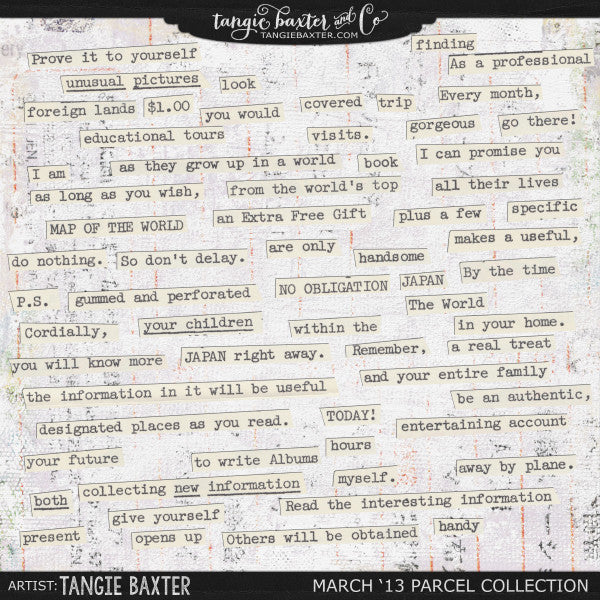 tangie baxter and Co
TANGIEBAXTER.COM
finding
Prove it to yourself
As a professional
unusual pictures
look
Every month,
foreign lands
$1.00
you would
covered
trip
gorgeous
go there!
educational tours
visits.
I can promise you
I am
as they grow up in a world
book
as long as you wish,
from the world's top
all their lives
MAP OF THE WORLD
an Extra Free Gift
plus a few
specific
are only
makes a useful,
do nothing.
So don't delay.
handsome
P.S.
gummed and perforated
NO OBLIGATION
JAPAN
By the time
The World
Cordially,
your children
within the
in your home.
you will know more
JAPAN right away.
Remember,
a real treat
the information in it will be useful
and your entire family
be an authentic,
designated places as you read.
TODAY!
entertaining account
your future
to write Albums
hours
away by plane.
both
collecting new information
myself.
present
give yourself
Read the interesting information
opens up
Others will be obtained
handy
ARTIST: TANGIE BAXTER
MARCH '13 PARCEL COLLECTION